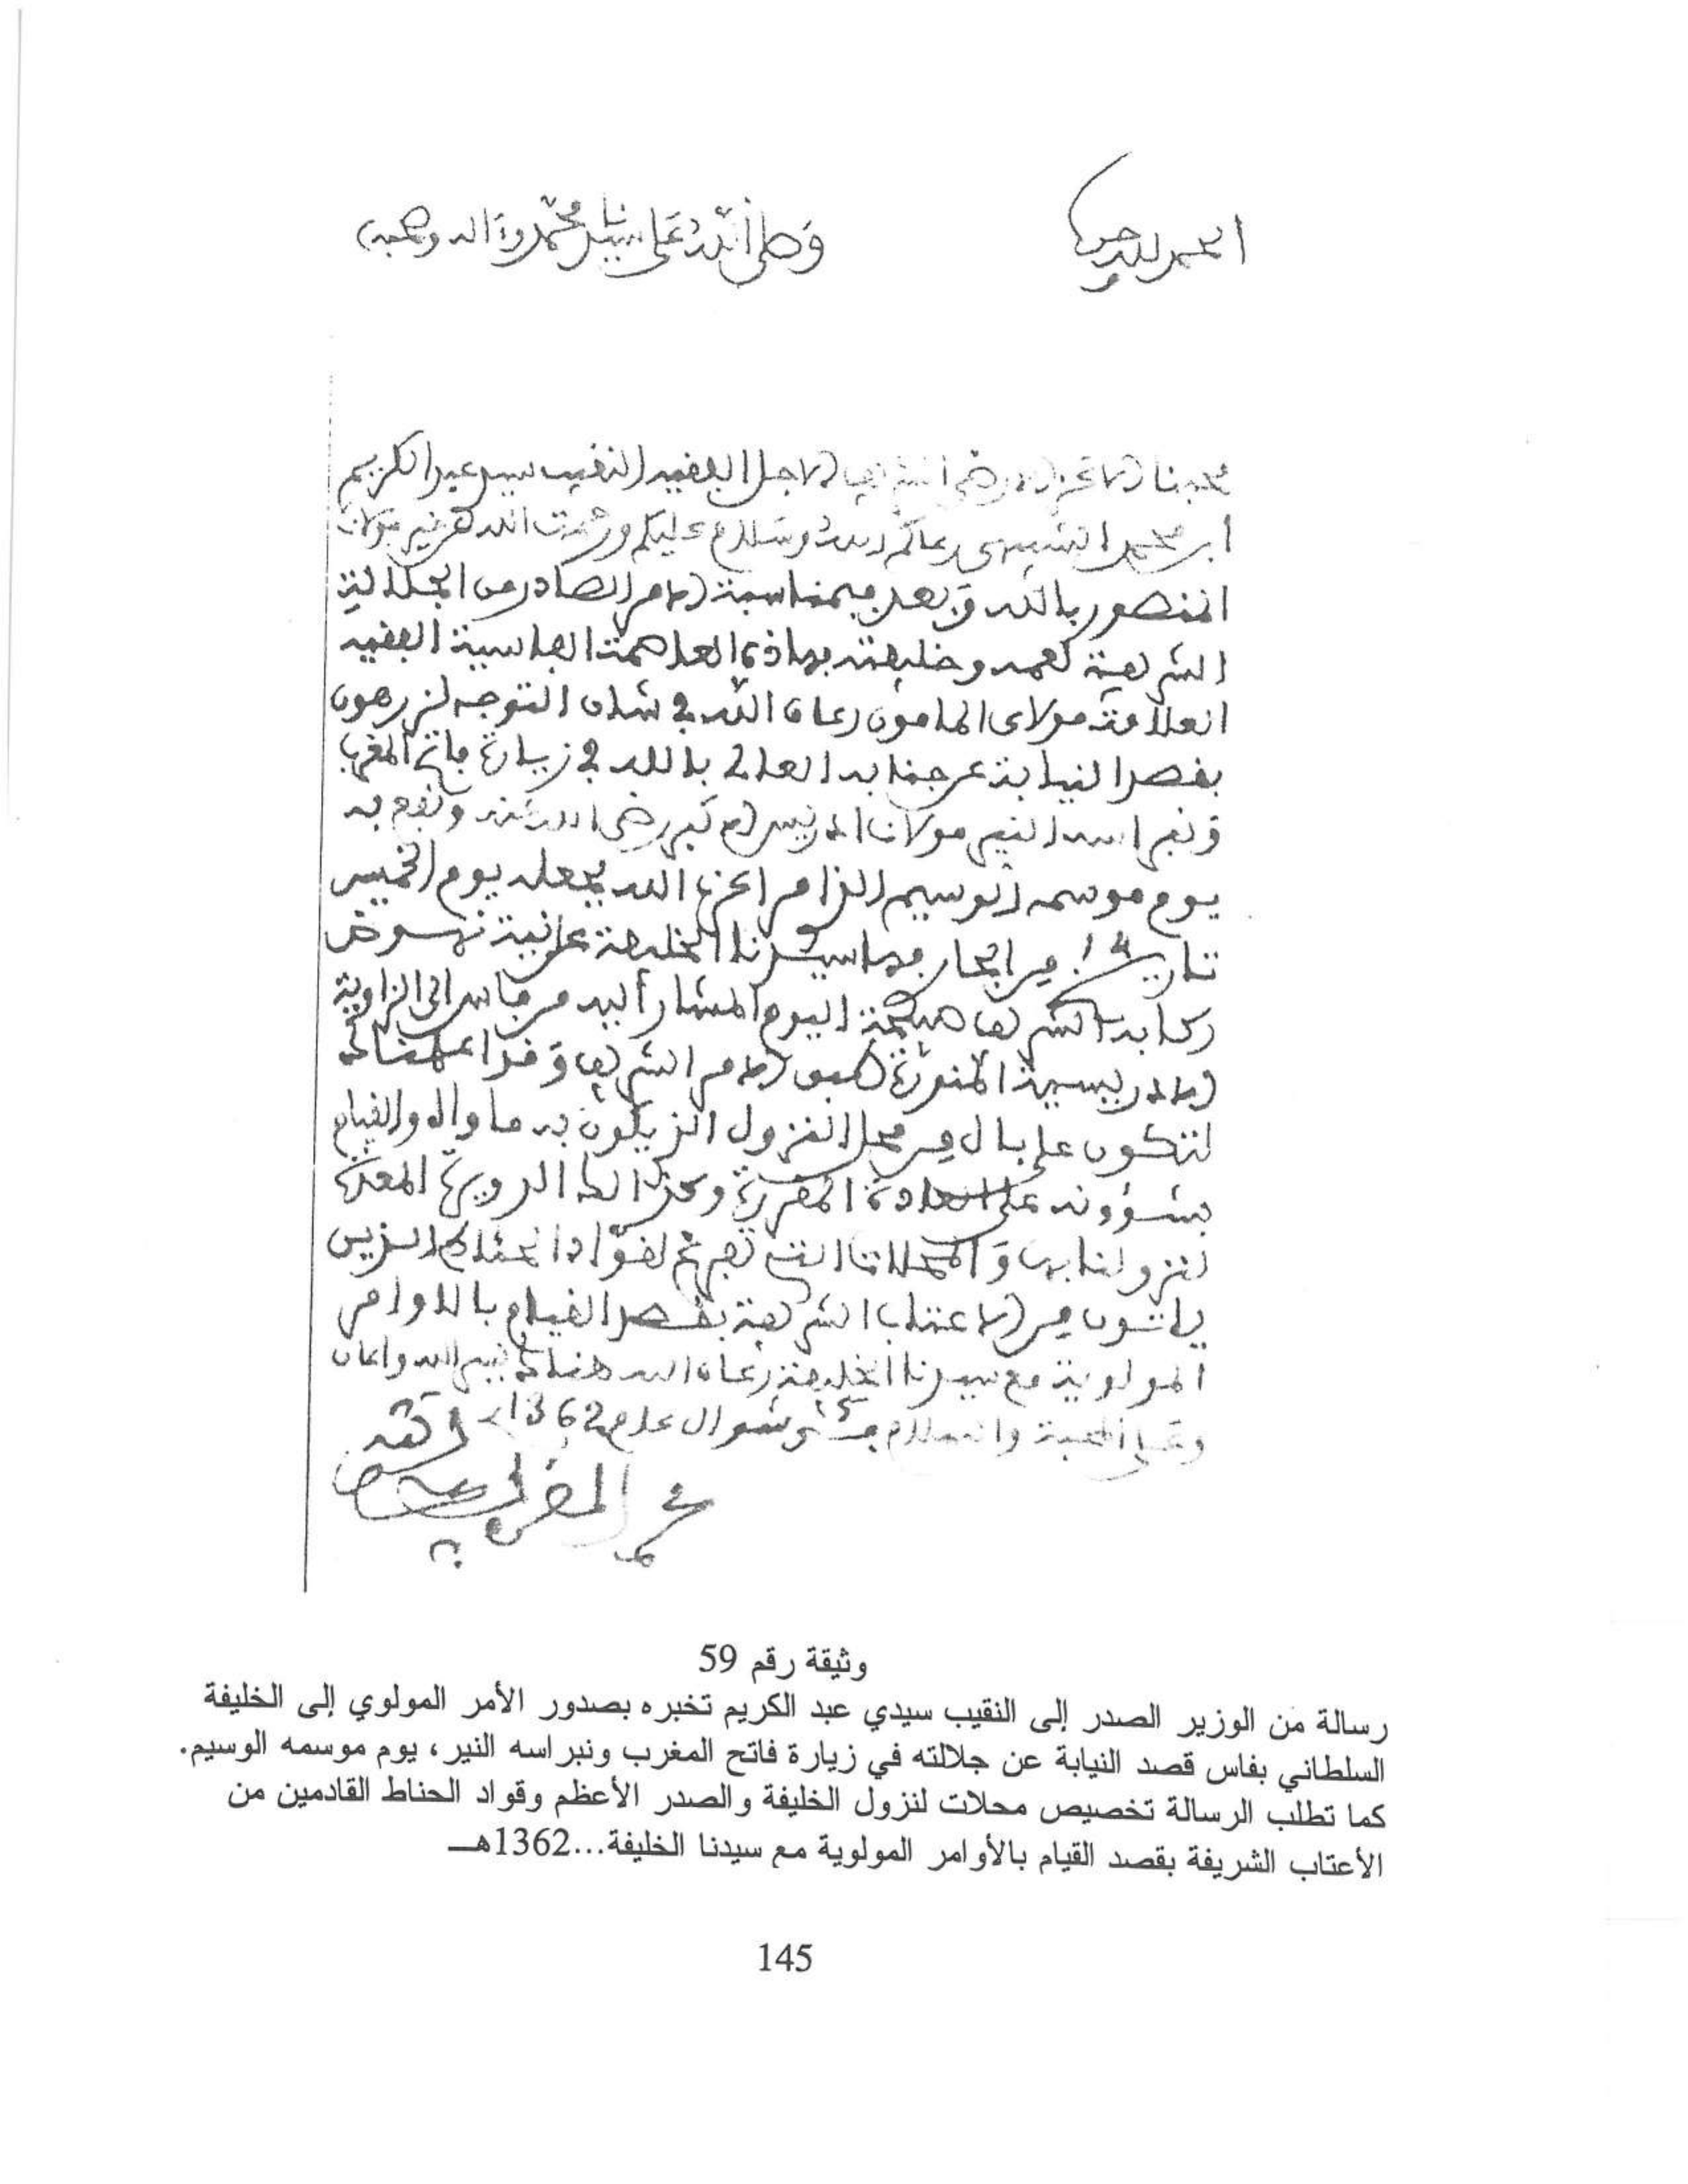 الحمد لله وحده
وصلى الله على سيدنا محمد وءاله وصحبه
محبنا الأعز الأرضى الشريف الأجل الفقيه النقيب سيدي عبد الكريم
ابن محمد الشبيهي رعاكم الله وسلام عليكم ورحمت الله عن خير مولانا
المنصور بالله وبعد فبمناسبة الأمر الصادر من الجلالة
الشريفة لعمه وخليفته بهاذه العاصمة الفاسية الفقيه
العلامة مولاي المامون رعاه الله في شان التوجه لزرهون
بقصد النيابة عن جنابه العالي بالله في زيارة فاتح المغرب
ونبراسه النير مولانا ادريس الأكبر رضي الله عنه ونفع به
يوم موسمه الوسيم الزاهر اعزه الله يجعله يوم الخميس
تاريخ 14 من الجاري فها سيدنا الخليفة على نية نهوض
ركابه الشريف صبيحة اليوم المشار اليه من فاس الى الزاوية
الادريسية المنورة طبق الأمر الشريف وقد اعلمناك
لتكون على بال من محل النزول الذي يكون به ماواه والقيام
بشؤونه على العادة المقررة وكذالك الدويرة المعدة
لنزولنا بها والمحلات التي تعرفهم لقواد الحناطي الذين
ياتون من الأعتاب الشريفة بقصد القيام بالأوامر
المولوية مع سيدنا الخليفة رعاه الله هناك والله
وعلى المحبة والسلام في شوال عام 1362
محمد المقري
وثيقة رقم 59
رسالة من الوزير الصدر إلى النقيب سيدي عبد الكريم تخبره بصدور الأمر المولوي إلى الخليفة
السلطاني بفاس قصد النيابة عن جلالته في زيارة فاتح المغرب ونبراسه النير، يوم موسمه الوسيم.
كما تطلب الرسالة تخصيص محلات لنزول الخليفة والصدر الأعظم وقواد الحناط القادمين من
الأعتاب الشريفة بقصد القيام بالأوامر المولوية مع سيدنا الخليفة...1362هـ
145